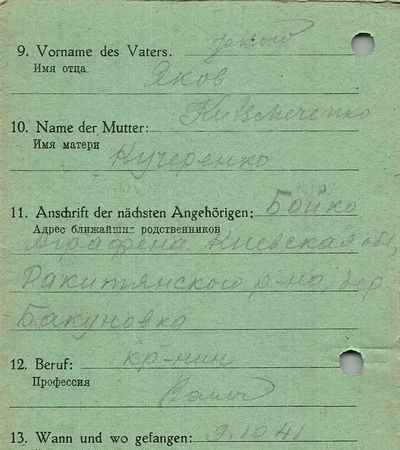 9. Vorname des Vaters.
Имя отца
Яков
10. Name der Mutter:
Имя матери
Кучеренко
11. Anschrift der nächsten Angehörigen: Бойко
Адрес ближайших родственников
Аграфена Киевская обл,
Ракитянского р-на, дер.
Бакуновка
12. Beruf: кр-нин
Профессия
13. Wann und wo gefangen: 9.10.41